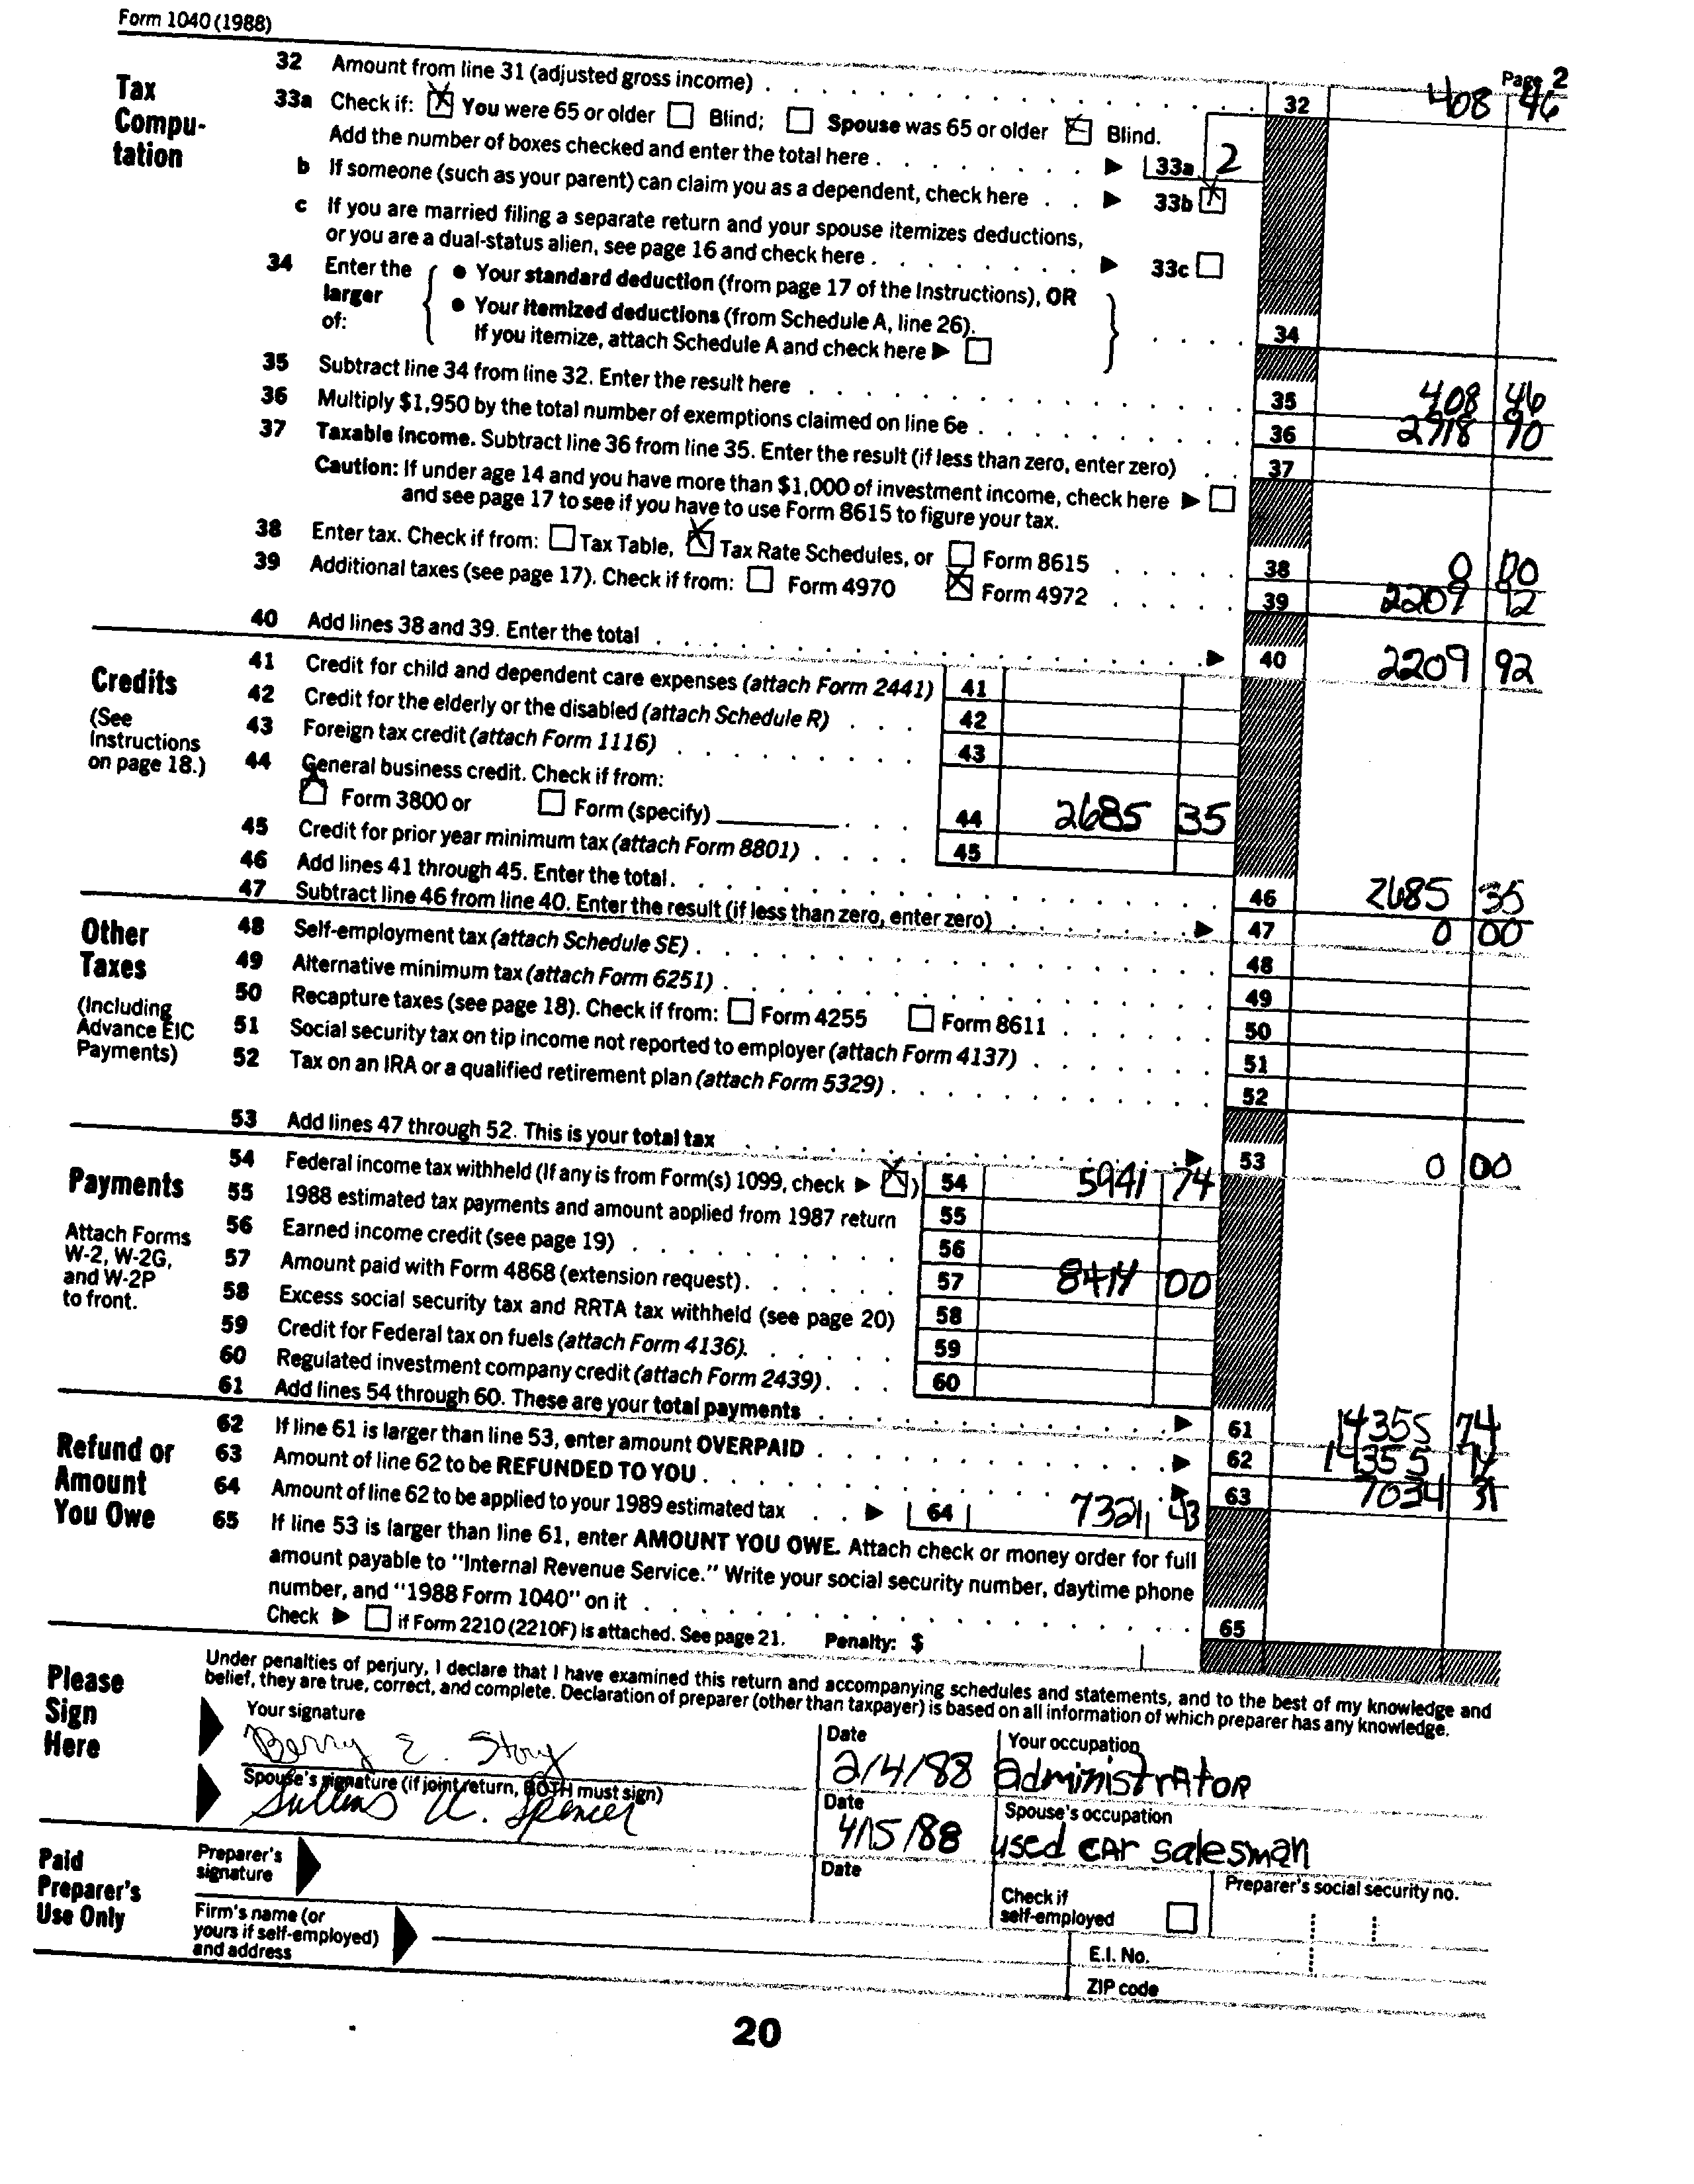 Form 1040 (1988)
Page 2
Tax Compu-tation
32 Amount from line 31 (adjusted gross income) 32 408 46
33a Check if: [X] You were 65 or older [ ] Blind; [ ] Spouse was 65 or older [X] Blind.
Add the number of boxes checked and enter the total here 33a 2
b If someone (such as your parent) can claim you as a dependent, check here 33b [X]
c If you are married filing a separate return and your spouse itemizes deductions,
or you are a dual-status alien, see page 16 and check here 33c [ ]
34 Enter the larger of:
• Your standard deduction (from page 17 of the Instructions), OR
• Your itemized deductions (from Schedule A, line 26).
If you itemize, attach Schedule A and check here ▶ [ ] 34
35 Subtract line 34 from line 32. Enter the result here 35 408 46
36 Multiply $1,950 by the total number of exemptions claimed on line 6e 36 2918 90
37 Taxable income. Subtract line 36 from line 35. Enter the result (if less than zero, enter zero) 37
Caution: If under age 14 and you have more than $1,000 of investment income, check here ▶ [ ]
and see page 17 to see if you have to use Form 8615 to figure your tax.
38 Enter tax. Check if from: [ ] Tax Table, [X] Tax Rate Schedules, or [ ] Form 8615 38 0 00
39 Additional taxes (see page 17). Check if from: [ ] Form 4970 [X] Form 4972 39 2209 92
40 Add lines 38 and 39. Enter the total ▶ 40 2209 92
Credits
(See Instructions on page 18.)
41 Credit for child and dependent care expenses (attach Form 2441) 41
42 Credit for the elderly or the disabled (attach Schedule R) 42
43 Foreign tax credit (attach Form 1116) 43
44 General business credit. Check if from:
[X] Form 3800 or [ ] Form (specify) 44 2685 35
45 Credit for prior year minimum tax (attach Form 8801) 45
46 Add lines 41 through 45. Enter the total 46 2685 35
47 Subtract line 46 from line 40. Enter the result (if less than zero, enter zero) ▶ 47 0 00
Other Taxes
(Including Advance EIC Payments)
48 Self-employment tax (attach Schedule SE) 48
49 Alternative minimum tax (attach Form 6251) 49
50 Recapture taxes (see page 18). Check if from: [ ] Form 4255 [ ] Form 8611 50
51 Social security tax on tip income not reported to employer (attach Form 4137) 51
52 Tax on an IRA or a qualified retirement plan (attach Form 5329) 52
53 Add lines 47 through 52. This is your total tax ▶ 53 0 00
Payments
Attach Forms W-2, W-2G, and W-2P to front.
54 Federal income tax withheld (If any is from Form(s) 1099, check ▶ [X]) 54 5941 74
55 1988 estimated tax payments and amount applied from 1987 return 55
56 Earned income credit (see page 19) 56
57 Amount paid with Form 4868 (extension request) 57 8414 00
58 Excess social security tax and RRTA tax withheld (see page 20) 58
59 Credit for Federal tax on fuels (attach Form 4136) 59
60 Regulated investment company credit (attach Form 2439) 60
61 Add lines 54 through 60. These are your total payments ▶ 61 14355 74
Refund or Amount You Owe
62 If line 61 is larger than line 53, enter amount OVERPAID ▶ 62 14355 74
63 Amount of line 62 to be REFUNDED TO YOU ▶ 63 7034 31
64 Amount of line 62 to be applied to your 1989 estimated tax ▶ 64 7321 43
65 If line 53 is larger than line 61, enter AMOUNT YOU OWE. Attach check or money order for full
amount payable to "Internal Revenue Service." Write your social security number, daytime phone
number, and "1988 Form 1040" on it 65
Check ▶ [ ] if Form 2210 (2210F) is attached. See page 21. Penalty: $
Please Sign Here
Under penalties of perjury, I declare that I have examined this return and accompanying schedules and statements, and to the best of my knowledge and
belief, they are true, correct, and complete. Declaration of preparer (other than taxpayer) is based on all information of which preparer has any knowledge.
Your signature Date Your occupation
Berry E. Story 2/4/88 administrator
Spouse's signature (if joint return, BOTH must sign) Date Spouse's occupation
U. Spencer 4/15/88 used car salesman
Paid Preparer's Use Only
Preparer's signature Date
Check if self-employed [ ]
Preparer's social security no.
Firm's name (or yours if self-employed) and address
E.I. No.
ZIP code
20